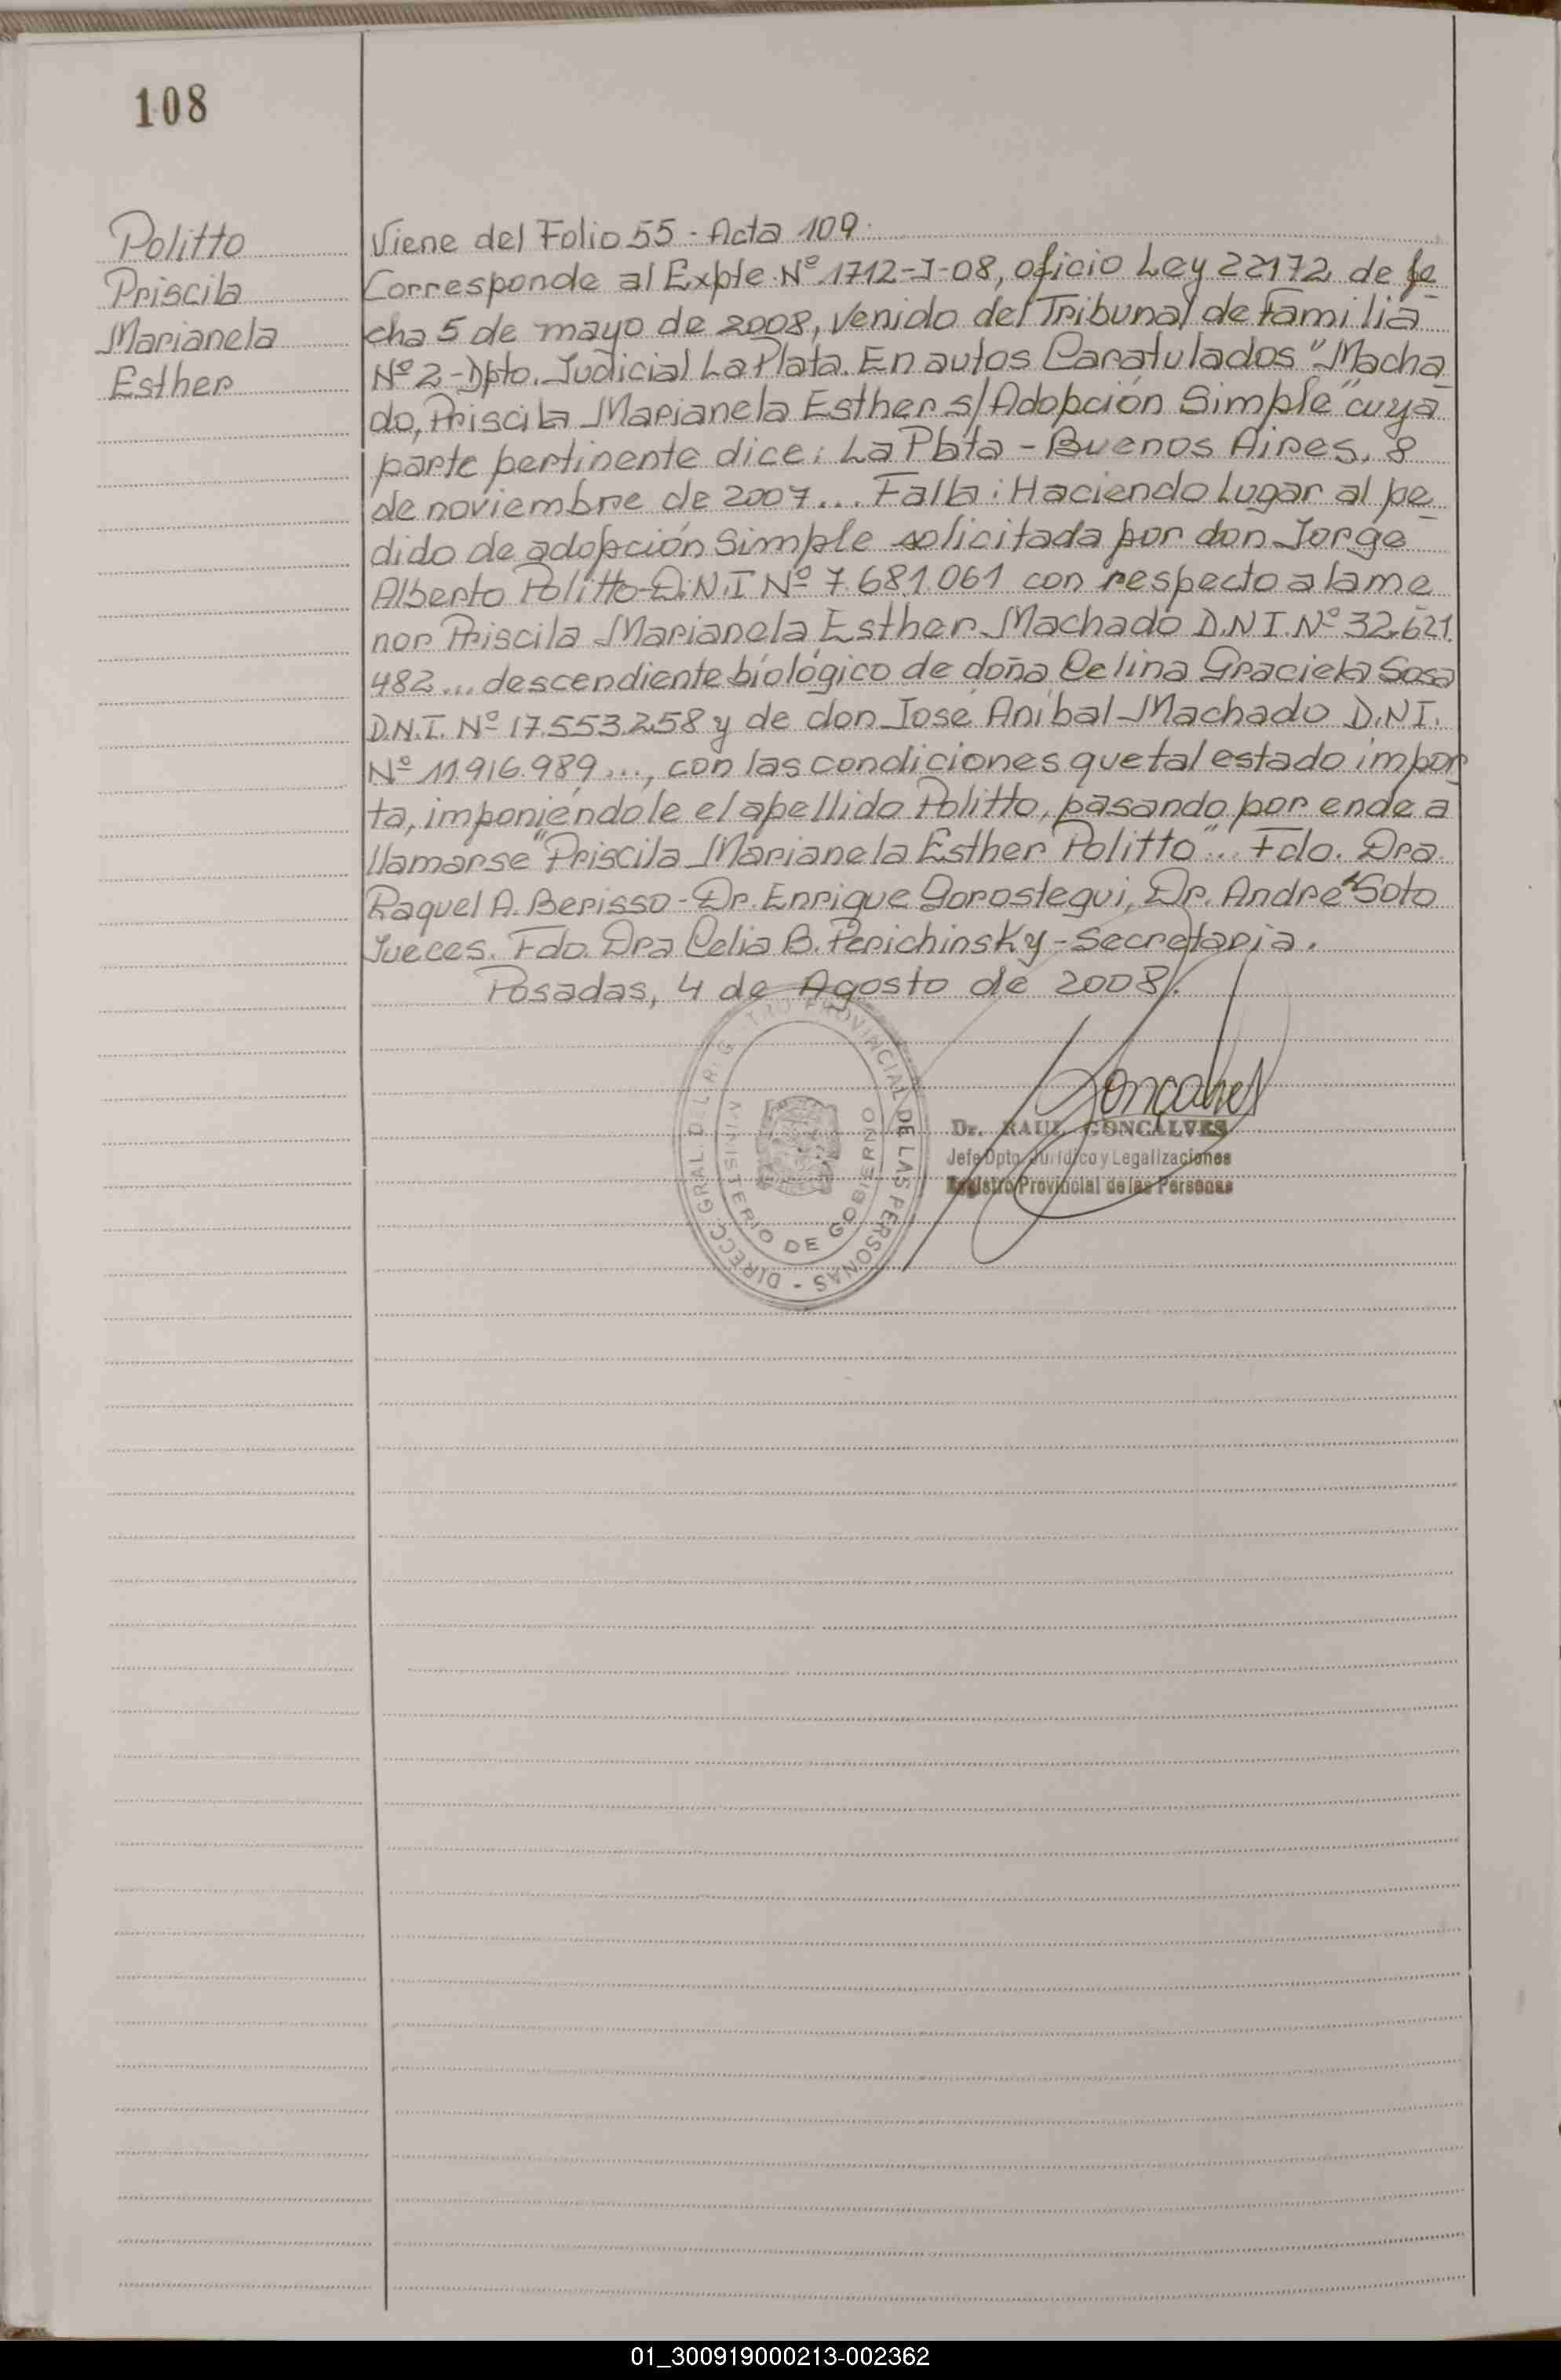 108
Politto
Priscila
Marianela
Esther
Viene del Folio 55 - Acta 109.
Corresponde al Expte. Nº 1712-J-08, oficio Ley 22172, de fe
cha 5 de mayo de 2008, venido del Tribunal de Familia
Nº 2 - Dpto. Judicial La Plata. En autos Caratulados "Macha
do, Priscila Marianela Esther s/Adopción Simple" cuya
parte pertinente dice: La Plata - Buenos Aires, 8
de noviembre de 2007... Falla: Haciendo Lugar al pe
dido de adopción Simple solicitada por don Jorge
Alberto Politto - D.N.I Nº 7.681.061 con respecto a la me
nor Priscila Marianela Esther Machado D.N.I. Nº 32.621.
482... descendiente biológico de doña Celina Graciela Sosa
D.N.I. Nº 17.553.258 y de don José Aníbal Machado D.N.I.
Nº 11.916.989..., con las condiciones que tal estado impor
ta, imponiéndole el apellido Politto, pasando por ende a
llamarse "Priscila Marianela Esther Politto".. Fdo. Dra.
Raquel A. Berisso - Dr. Enrique Gorostegui, Dr. André Soto
Jueces. Fdo. Dra Celia B. Perichinsky - Secretaria.
Posadas, 4 de Agosto de 2008.
DIRECC. GRAL. DEL REGISTRO PROVINCIAL DE LAS PERSONAS -
MINISTERIO DE GOBIERNO
Goncalves
Dr. RAUL GONCALVES
Jefe Dpto. Jurídico y Legalizaciones
Registro Provincial de las Personas
01_300919000213-002362